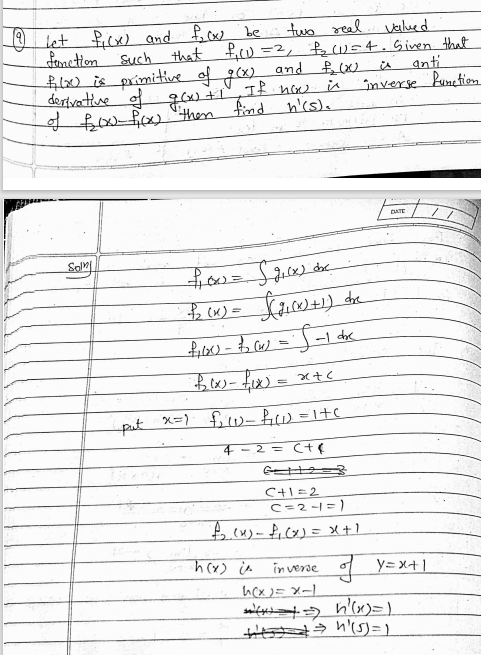 9 Let f₁(x) and f₂(x) be two real valued
function such that f₁(1) = 2, f₂(1) = 4. Given that
f₁(x) is primitive of g(x) and f₂(x) is anti
derivative of g(x)+1. If h(x) is inverse function
of f₂(x)-f₁(x) then find h'(5).
DATE / /
Solⁿ
f₁(x) = ∫g₁(x) dx
f₂(x) = ∫(g₁(x)+1) dx
f₁(x) - f₂(x) = ∫-1 dx
f₂(x) - f₁(x) = x+c
put x=1 f₂(1) - f₁(1) = 1+c
4 - 2 = c+1
c = 1+2 = 3
c+1=2
c = 2-1=1
f₂(x) - f₁(x) = x+1
h(x) is inverse of y=x+1
h(x) = x-1
h'(x) = 1 ⇒ h'(x)=1
h'(5) = 1 ⇒ h'(5)=1